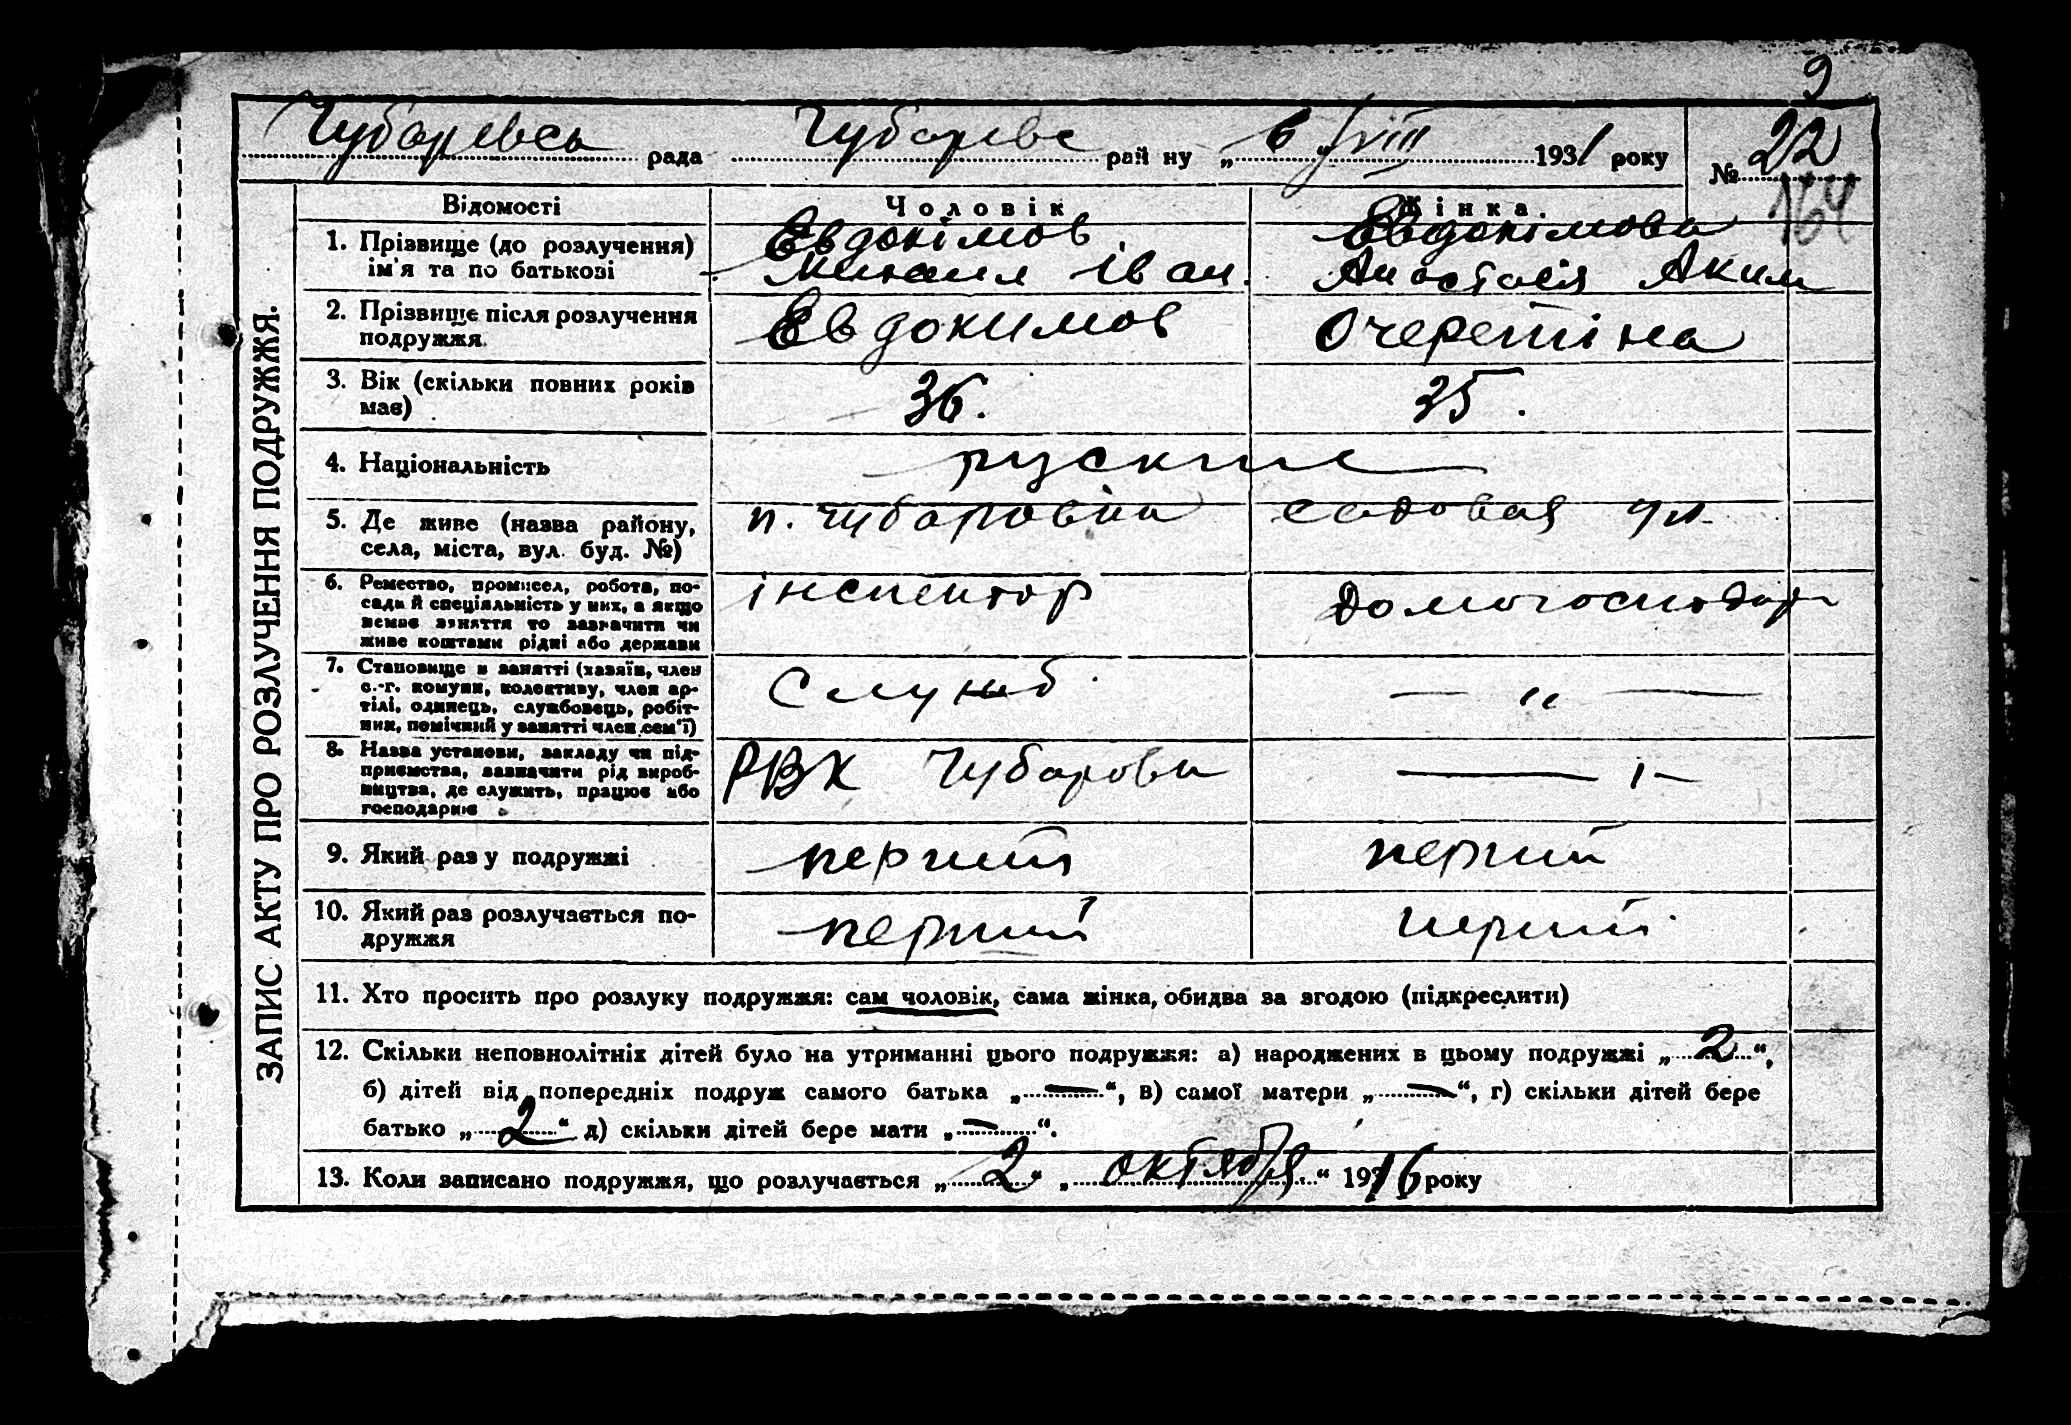 9
Чубаревсь рада Чубаревс рай ну „ 6 “ VIII 1931 року № 22
164
ЗАПИС АКТУ ПРО РОЗЛУЧЕННЯ ПОДРУЖЖЯ.
Відомості Чоловік Жінка.
1. Прізвище (до розлучення) Евдокімов Евдокімова
ім'я та по батькові Михаил Іван. Анастасія Аким
2. Прізвище після розлучення Евдокимов Очеретіна
подружжя.
3. Вік (скільки повних років 36. 35.
має)
4. Національність руские
5. Де живе (назва району, п. Чубаровка садовая ул.
села, міста, вул. буд. №)
6. Ремество, промисел, робота, по- інспектор домогосподар
сада й спеціяльність у них, а якщо
немає заняття то зазначити чи
живе коштами рідні або держави
7. Становище в занятті (хазяїн, член Служб. — „ —
с.-г. комуни, колективу, член ар-
тілі, одинець, службовець, робіт-
ник, помічний у занятті член сем'ї)
8. Назва установи, закладу чи під- РВК Чубаровки — ı —
приємства, зазначити рід вироб-
ництва, де служить, працює або
господарює
9. Який раз у подружжі перший перший
10. Який раз розлучається по- перший перший
дружжя
11. Хто просить про розлуку подружжя: сам чоловік, сама жінка, обидва за згодою (підкреслити)
12. Скільки неповнолітніх дітей було на утриманні цього подружжя: а) народжених в цьому подружжі „ 2 “,
б) дітей від попередніх подруж самого батька „ — “, в) самої матери „ — “, г) скільки дітей бере
батько „ 2 “ д) скільки дітей бере мати „ — “.
13. Коли записано подружжя, що розлучається „ 2 „ октября “ 1916 року